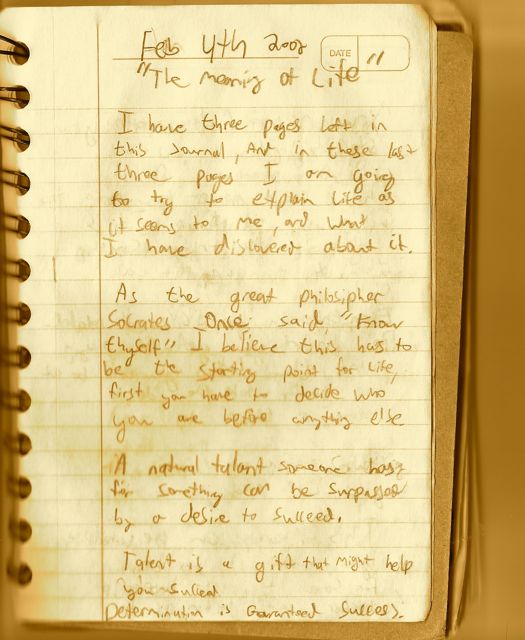 Feb 4th 2002
DATE
"The meaning of Life"
I have three pages left in
this Journal, And in these last
three pages I am going
to try to explain Life as
it seems to me, and what
I have discovered about it.
As the great philosipher
Socrates Once said, "Know
thyself" I believe this has to
be the starting point for Life,
first you have to decide who
you are before anything else
A natural talant someone has
for something can be surpassed
by a desire to succeed.
Talent is a gift that might help
you succeed
Determination is Guaranteed Success.